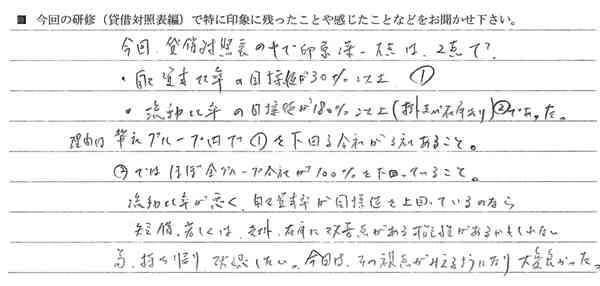 ■ 今回の研修（貸借対照表編）で特に印象に残ったことや感じたことなどをお聞かせ下さい。
今回、貸借対照表の中で印象深い点は、2点で、
・自己資本比率の目標値が30%以上 ①
・流動比率の目標値が180%以上(掛, 在庫あり)②であった。
理由は 弊社グループ内で①を下回る会社が3社あること。
②ではほぼ全グループ会社が100%を下回っていること。
流動比率が悪く、自己資本率が目標値を上回っているのなら
短借、若しくは、売掛、在庫に改善点がある可能性があるかもしれない
為、持ち帰り確認したい。今回は、その視点が見えるようになり大変良かった。